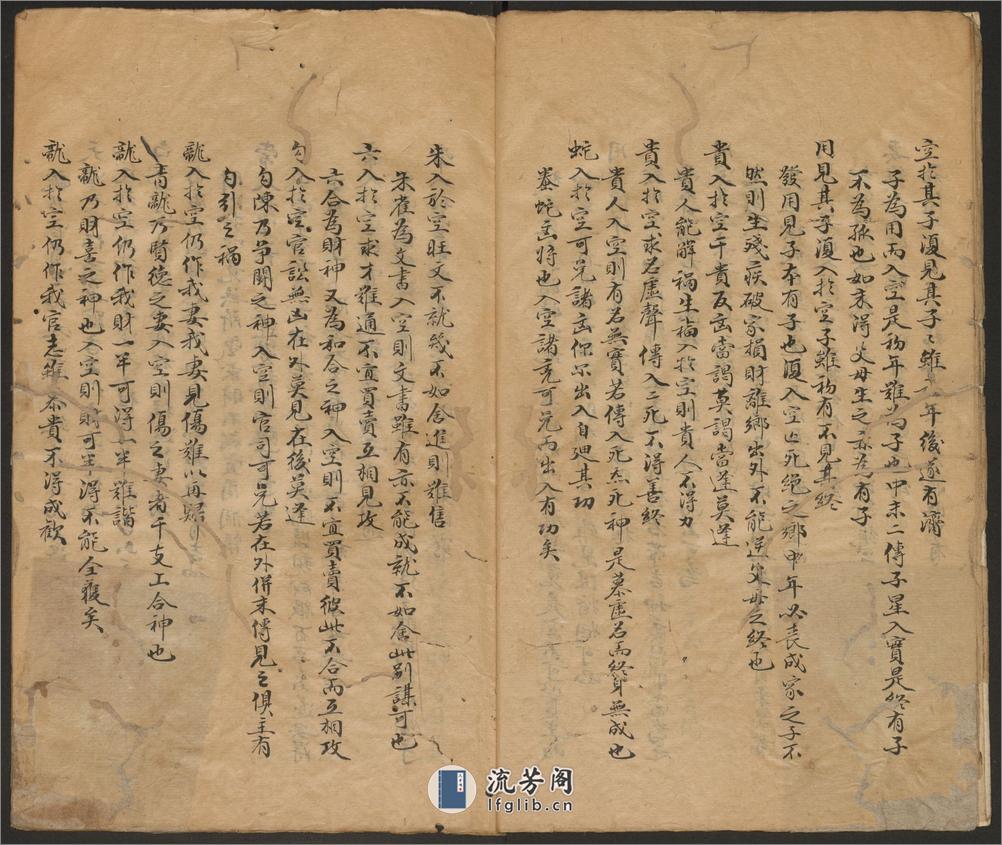 空於其子復見其子〻雖一年後遂有濟
子為用而入空是初年難為子也中末二傳子星入實是終有子
不為孤也如未得父母生之亦為有子
用見其子復入於空子雖初有不見其終
發用見子本有子也復入空亡死絕之鄉中年必喪成家之子不
然則生殘疾破家損財離鄉出外不能送父母之終也
貴入於空干貴反凶當謁莫謁當逢莫逢
貴人能解禍生福入於空則貴人不得力
貴入於空求名虛聲傳入二死不得善終
貴人入空則有名無實若傳入死炁死神是慕虛名而終身無成也
蛇入於空可免諸凶你尔出入自廻其功
螣蛇凶将也入空諸竞可免而出入有功矣
朱入於空旺文不就幾不如舍進則難信
朱雀為文書入空則文書雖有亦不能成就不如舍此别謀可也
六入於空求才难通不宜買賣互相見攻
六合為財神又為和合之神入空則不宜買賣彼此不合而互相攻
勾入於空官訟無凶在外莫見在後莫逢
勾陳乃爭鬭之神入空則官司可免若在外併末傳見之俱主有
勾引之禍
龍入於空仍作我妻我妻見傷难以再娶
青龍乃賢德之妻入空則傷之妻者干支工合神也
龍入於空仍作我財一年可得一半難諧
龍乃財喜之神也入空則財可半得不能全獲矣
龍入於空仍作我官志雖恭貴不得成歡
流芳阁
lfglib.cn